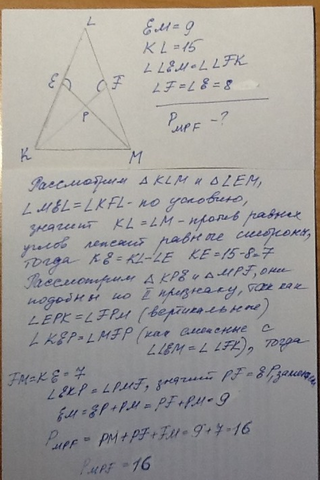 L
E
F
P
K
M
EM=9
KL=15
∠LEM=∠LFK
LF=LE=8
P MPF -?
Рассмотрим △KLM и △LEM,
∠MEL=∠KFL - по условию,
значит KL=LM - против равных
углов лежат равные стороны,
тогда KE=KL-LE KE=15-8=7
Рассмотрим △KPE и △MPF, они
подобны по II признаку, так как
∠EPK=∠FPM (вертикальные)
∠KEP=∠MFP (как смежные с
∠LEM=∠LFK), тогда
FM=KE=7
∠EKP=∠PMF, значит PF=EP, значит
EM=EP+PM=PF+PM=9
P MPF = PM+PF+FM=9+7=16
P MPF = 16